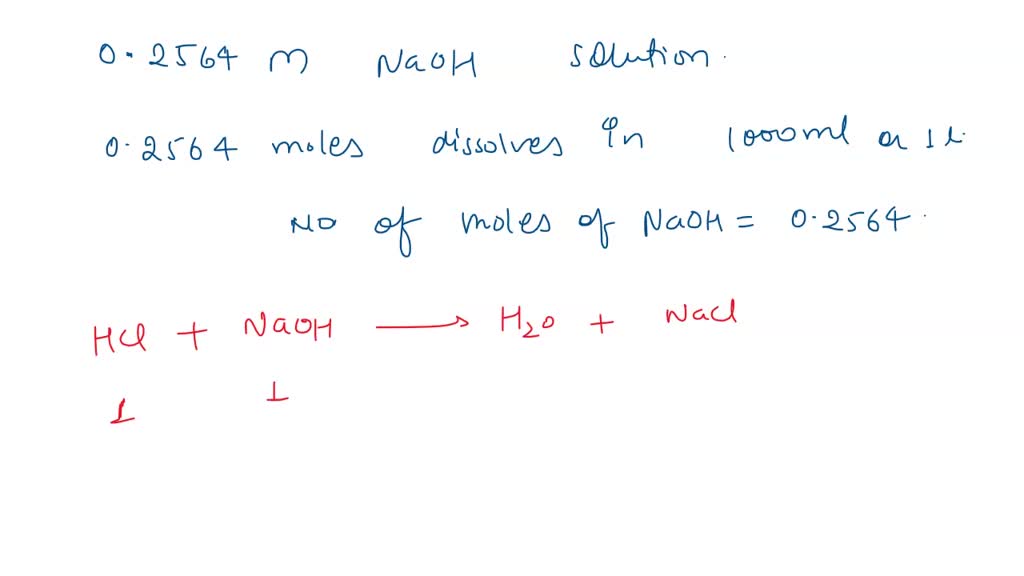 0.2564 m NaOH solution.
0.2564 moles dissolves in 1000ml or 1L.
No of moles of NaOH = 0.2564.
HCl + NaOH → H2O + NaCl
1 1